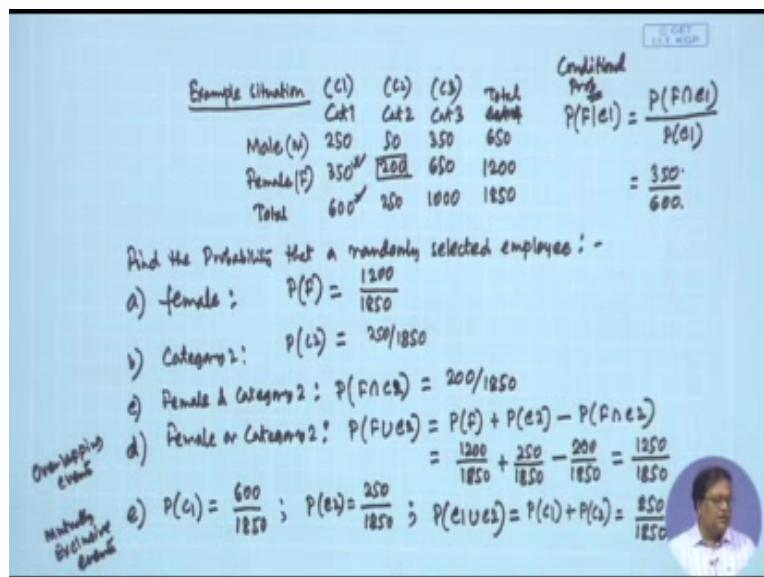 © CET
I.I.T. KGP
Example Situation (C1) (C2) (C3) Total
Cat1 Cat2 Cat3
Male (M) 250 50 350 650
Female (F) 350 200 650 1200
Total 600 250 1000 1850
Conditional
Prob
P(F|C1) = P(F∩C1) / P(C1)
= 350 / 600
Find the Probability that a randomly selected employee : -
a) female : P(F) = 1200 / 1850
b) Category 2 : P(C2) = 250/1850
c) Female & Category 2 : P(F∩C2) = 200/1850
d) Female or Category 2 : P(F∪C2) = P(F) + P(C2) - P(F∩C2)
= 1200/1850 + 250/1850 - 200/1850 = 1250/1850
Overlapping
events
e) P(C1) = 600/1850 ; P(C2) = 250/1850 ; P(C1∪C2) = P(C1) + P(C2) = 850/1850
Mutually
Exclusive
events